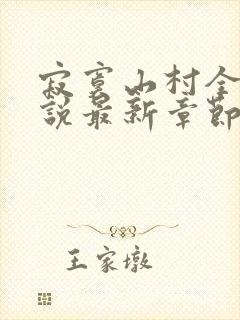 寂寞山村全
說最新章節
王家墩